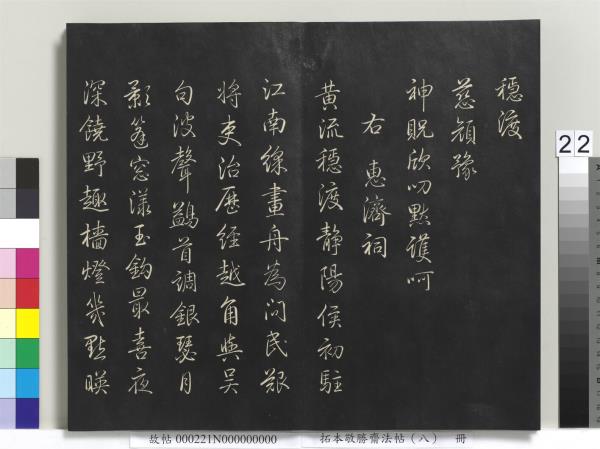 穩渡
慈顏豫
神貺欣叨默護呵
右 惠濟祠
黃流穩渡靜陽侯初駐
江南綵畫舟為問民艱
將吏治歷經越角與吳
句波聲鷁首調銀瑟月
影篷窓漾玉鈎最喜夜
深饒野趣檣燈幾點暎
22
故帖 000221N000000000
拓本敬勝齋法帖（八） 冊